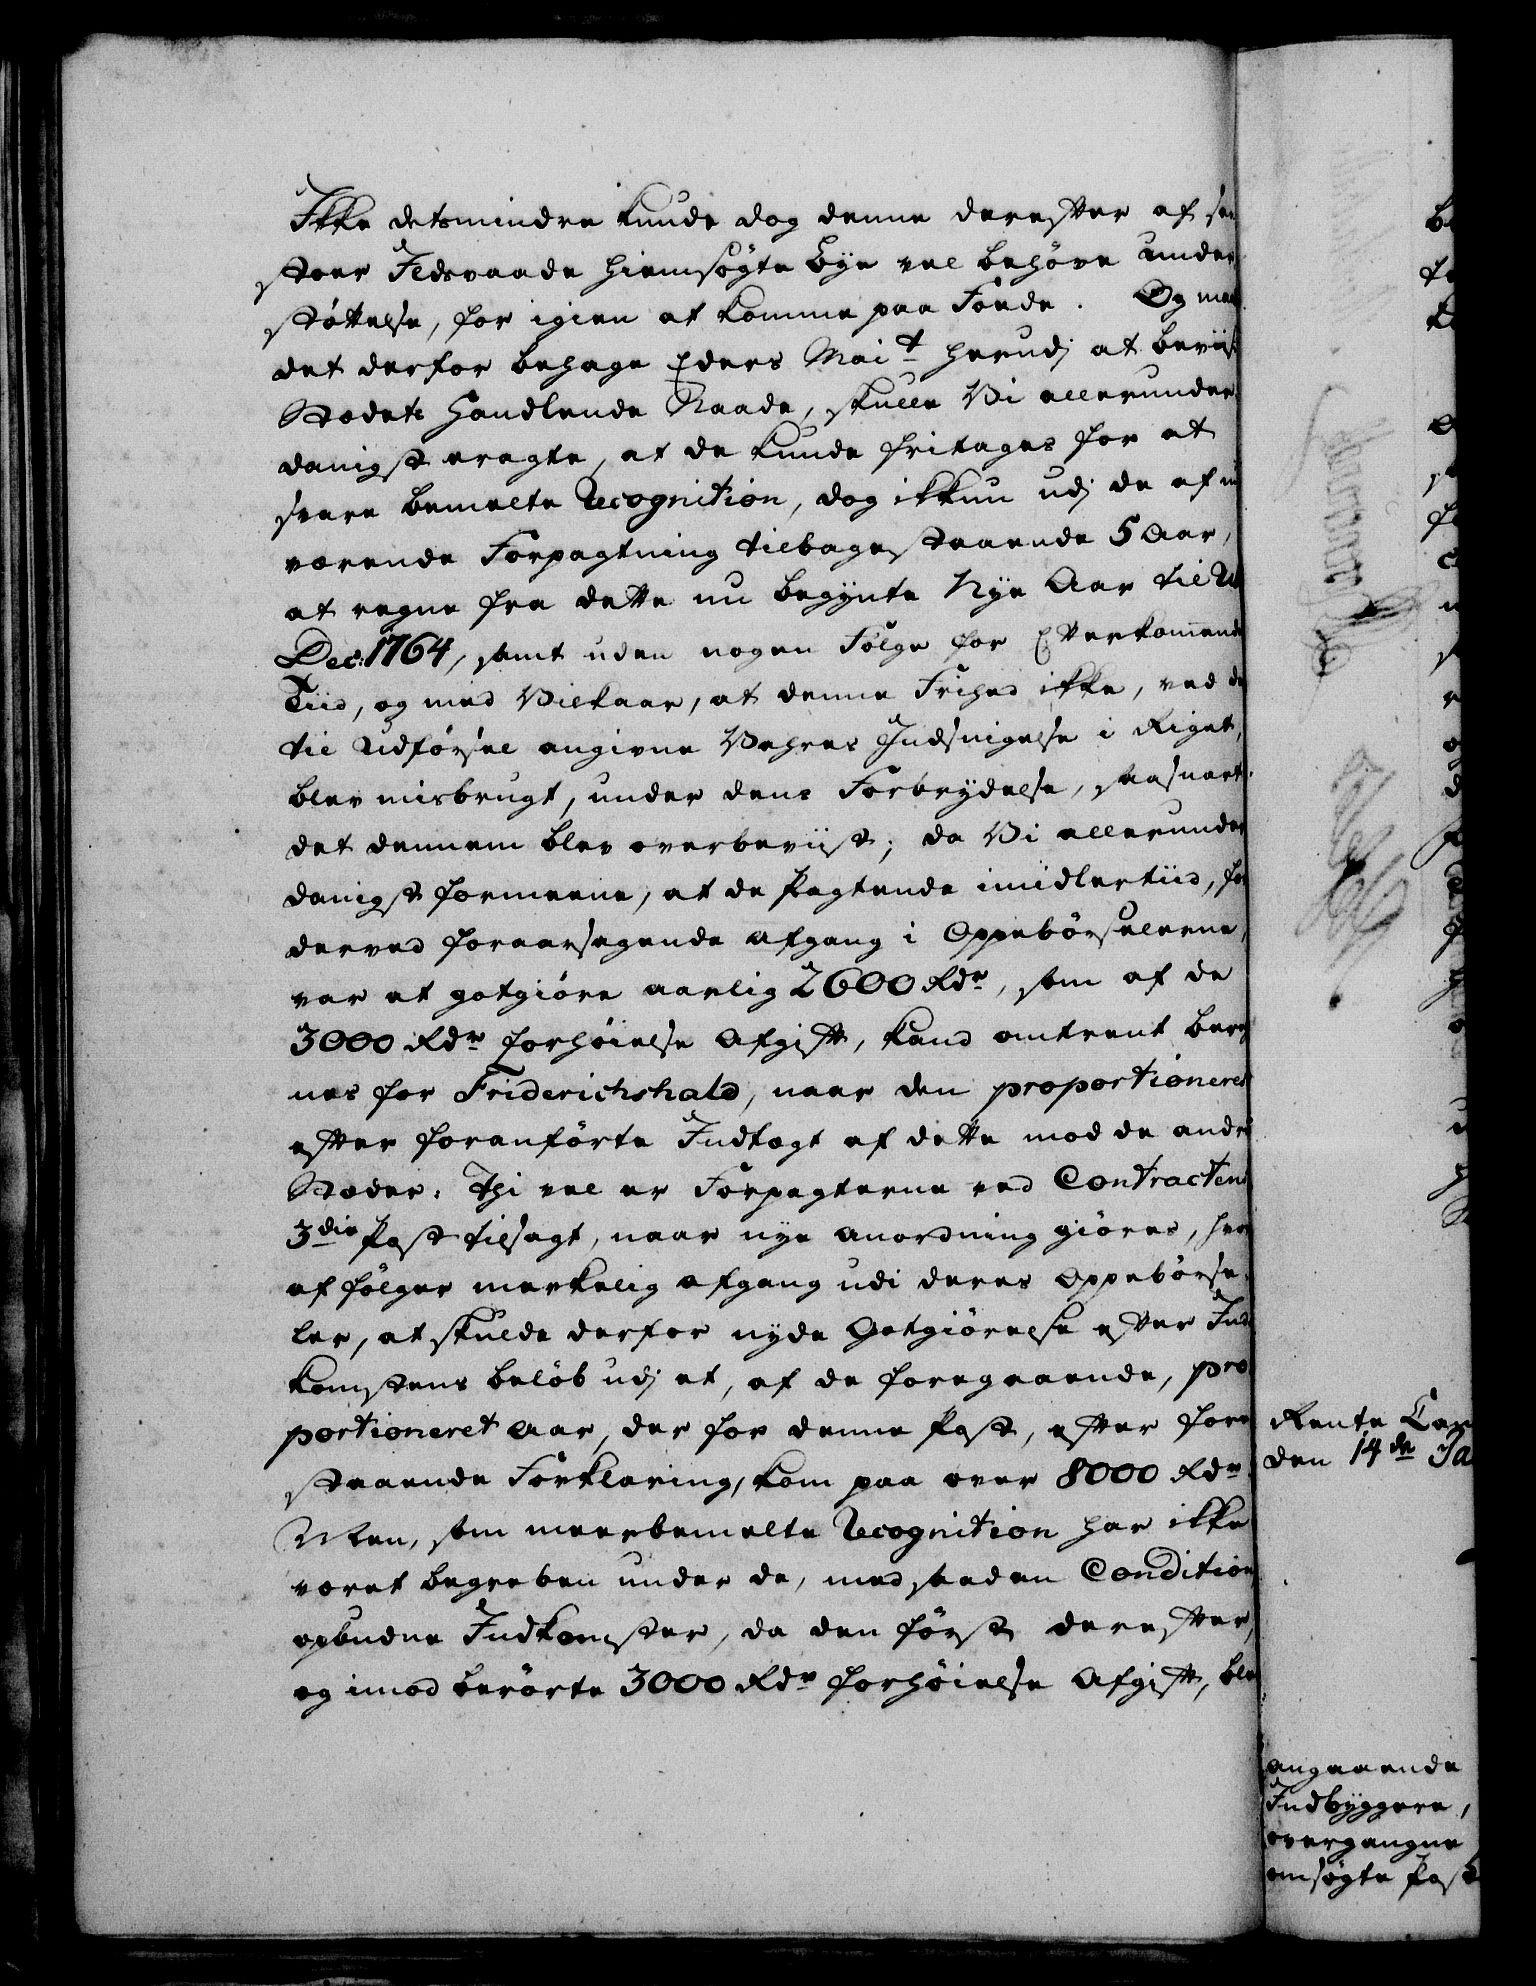 Ikke detsmindre kunde dog denne derefter af saa
stoer Ildsvaade hiemsøgte Bye vel behøve under-
støttelse, for igien at komme paa Fode. Og maatte
det derfor behage Eders Mai.t herudj at beviise
Stædets Handlende Naade, skulle Vi allerunder-
danigst eragte, at de kunde fritages for at
svare bemelte Recognition, dog ikkun udj de af nu
værende Forpagtning tilbagestaaende 5 Aar,
at regne fra dette nu begynte Nye Aar til Ult.
Dec: 1764, samt uden nogen Følge for Efterkommende
Tiid, og med Vilkaar, at denne Frihed ikke, ved de
til Udførsel angivne Vahres Indsnigelse i Riget,
blev misbrugt, under dens Forbrydelse, saasnart
det dennem blev overbeviist; da Vi allerunder-
danigst formeene, at de Pagtende imidlertiid, for
derved foraarsagende Afgang i Oppebørselerne,
var at gotgiøre aarlig 2600 Rdr, som af de
3000 Rdr forhøielse Afgift, kand omtrent bereg-
nes for Friderichshald, naar den proportioneret
efter foranførte Indtægt af dette mod de andre
Stæder. Thi vel er Forpagterne ved Contractens
3die Post tilsagt, naar nye Anordning giøres, hvor
af følger merkelig Afgang udi deres Oppebørse-
ler, at skulde derfor nyde Gotgiørelse efter Ind-
komstens beløb udj et, af de foregaaende, pro-
portioneret Aar, der for denne Post, efter fore-
staaende Forklaring, kom paa over 8000 Rdr.
Men, som meerbemelte Recognition har ikke
været begreben under de, med saadan Condition
opbudne Indkomster, da den først derefter,
og imod berørte 3000 Rdr forhøielse Afgift, blev
Rente Cam
den 14de Ja
angaaende
Indbyggere,
overgangne
omsøgte Post